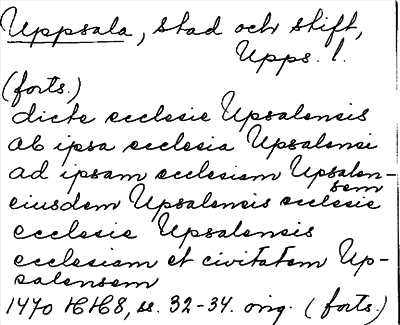 Uppsala, stad och stift,
Upps. l.
(forts.)
dicte ecclesie Upsalensis
ab ipsa ecclesia Upsalensi
ad ipsam ecclesiam Upsalen-
sem
eiusdem Upsalensis ecclesie
ecclesie Upsalensis
ecclesiam et civitatem Up-
salensem
1470 16/68, ss. 32-34. orig. (forts.)